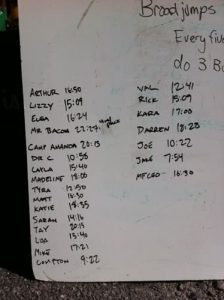 Broad jumps
Every fiv
do 3 B
ARTHUR 16:50
LIZZY 15:09
ELBA 16:24
MR BACON 22:27
CAMP AMANDA 20:13
DR C 10:58
CAYLA 15:40
MADELINE 18:00
TYRA 12:50
MATT 18:30
KATIE 18:35
SARAH 14:16
TAY 20:15
LISA 15:40
MIKE 17:21
COMPTON 9:22
VAL 12:41
RICK 15:09
KARA 17:00
DARREN 18:23
JOE 10:22
JANE 7:54
MFCEO 16:30